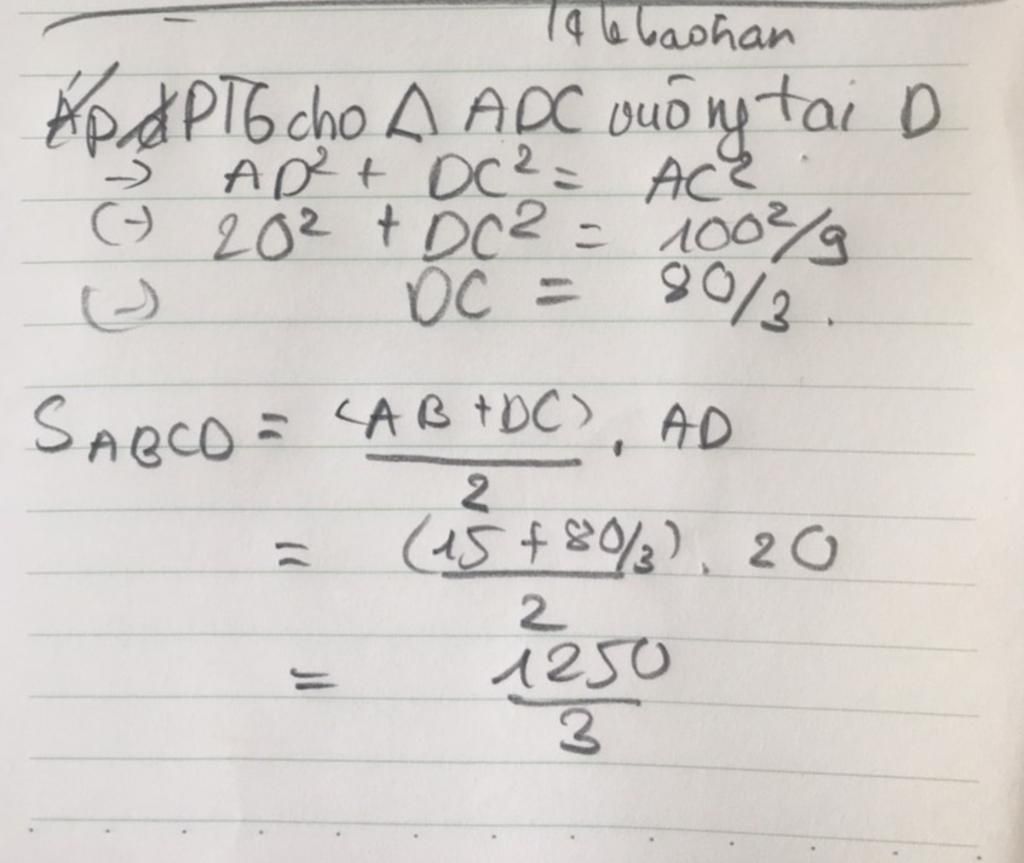 lq lebaohan
Áp d PTG cho Δ ADC vuông tai D
→ AD² + DC² = AC²
(-) 20² + DC² = 100²/9
(-) DC = 80/3.
S ABCD = (AB + DC)/2 . AD
= (15 + 80/3)/2 . 20
= 1250/3